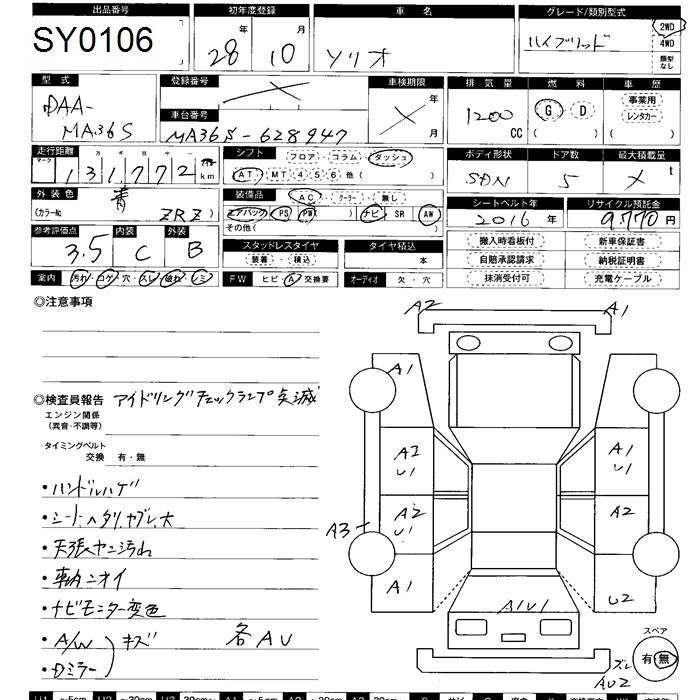 出品番号 初年度登録 車名 グレード/類別型式
SY0106 28年 10月 ソリオ ハイブリッド 2WD 4WD 類型なし
型式 登録番号 車検期限 排気量 燃料 車歴
DAA-MA36S × × 年 月 1200 CC G D ( ) 事業用 レンタカー ( )
車台番号 MA36S-628947
走行距離 マーク 十万 万 千 百 十 131772 km
シフト フロア・コラム・ダッシュ
AT・MT 4 5 6 他( )
ボディ形状 ドア数 最大積載量
SDN 5 × t
外装色 青 (カラー№ ZRZ)
装備品 AC・クーラー・無し
エアバック PS PW ナビ SR AW
その他( )
シートベルト年 リサイクル預託金
2016年 9,770円
参考評価点 内装 外装
3.5 C B
スタッドレスタイヤ タイヤ積込
装着・積込 本
搬入時看板付 新車保証書
自賠承認請求 納税証明書
抹消受付可 充電ケーブル
室内 汚れ・コゲ・穴・スレ・破れ・シミ FW ヒビ・A・交換要 オーディオ 欠・穴
◎注意事項
◎検査員報告 アイドリングチェックランプ点滅
エンジン関係
(異音・不調等)
タイミングベルト
交換 有・無
・ハンドルハゲ
・シートヘタリ、ヤブレ大
・天張ヤニ汚れ
・車内ニオイ
・ナビモニター変色
・A/W
・Dミラー
キズ 各AU
A2 A1
A1
A2 U1
A1 U1
A2 U1
A2
A3
A1
U2
A1U1
スペア
有・無
ズレ
AU2